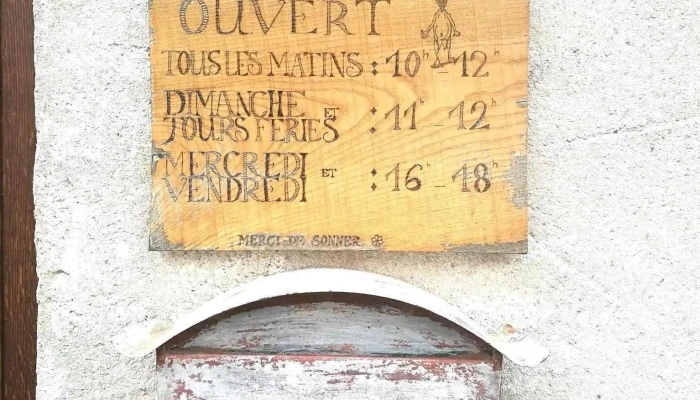 OUVERT
TOUS LES MATINS : 10h - 12h
DIMANCHE ET
JOURS FERIES : 11h - 12h
MERCREDI ET
VENDREDI : 16h - 18h
MERCI DE SONNER